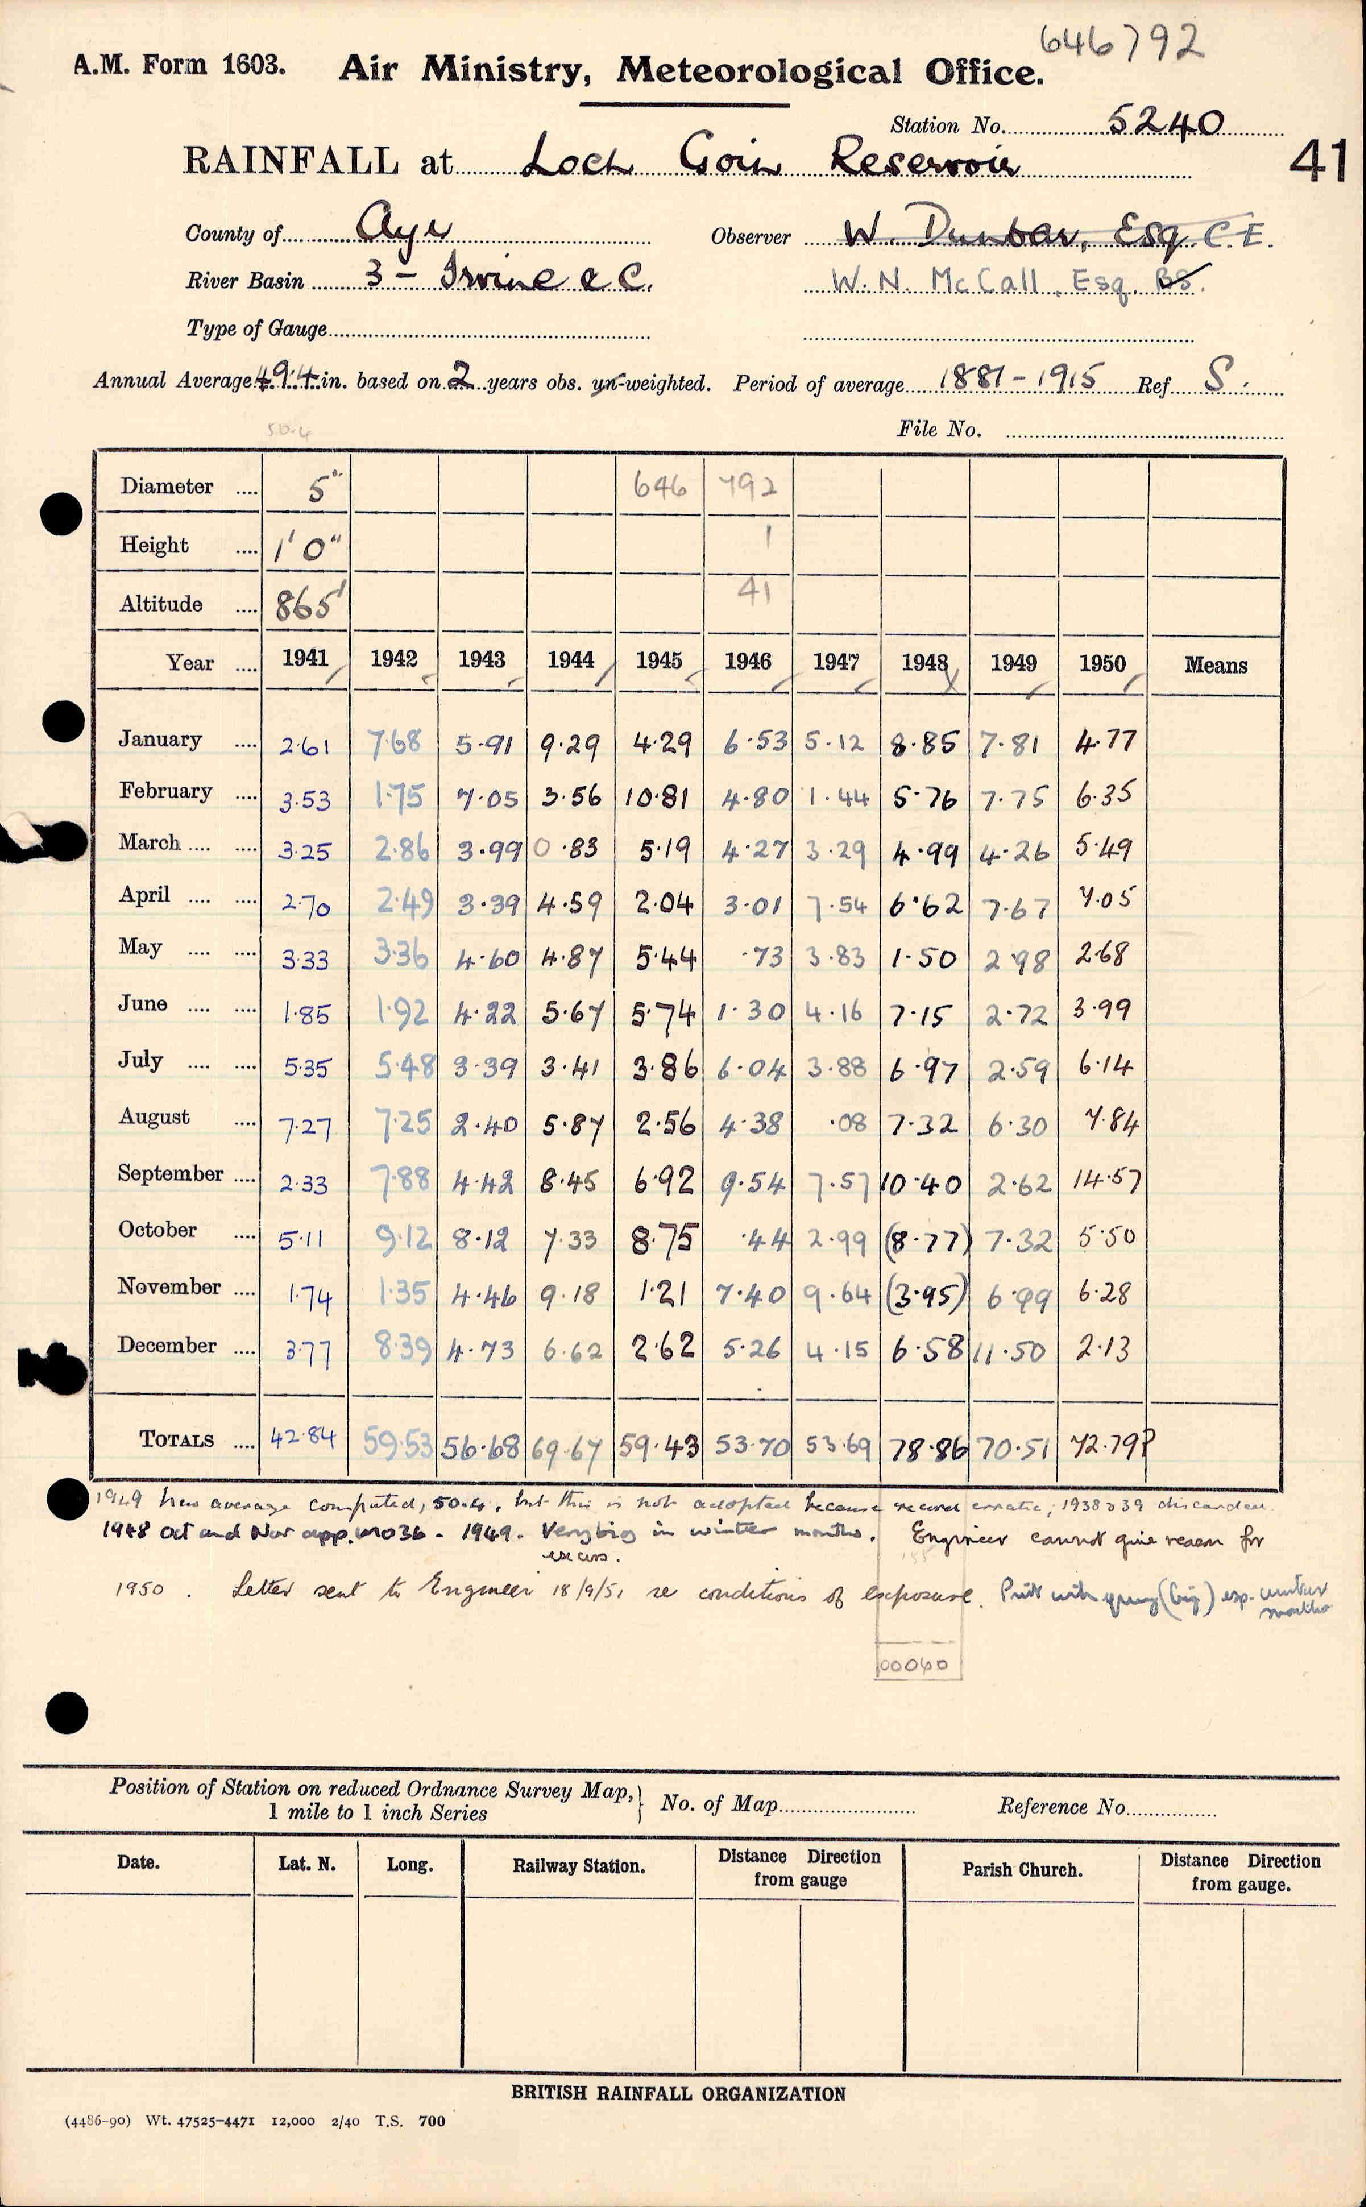 646792
A.M. Form 1603. Air Ministry, Meteorological Office.
Station No. 5240
RAINFALL at Loch Goin Reservoir 41
County of Ayr Observer W. Dunbar, Esq. C.E.
River Basin 3 - Irvine & C. W. N. McCall, Esq. BS.
Type of Gauge
Annual Average 49.4 in. based on 2 years obs. un-weighted. Period of average 1881-1915 Ref S.
50.4
File No.
Diameter .... 5" 646 792
Height .... 1' 0" 1
Altitude .... 865' 41
Year .... 1941 1942 1943 1944 1945 1946 1947 1948 1949 1950 Means
January .... 2.61 7.68 5.91 9.29 4.29 6.53 5.12 8.85 7.81 4.77
February .... 3.53 1.75 7.05 3.56 10.81 4.80 1.44 5.76 7.75 6.35
March .... .... 3.25 2.86 3.99 0.83 5.19 4.27 3.29 4.99 4.26 5.49
April .... .... 2.70 2.49 3.39 4.59 2.04 3.01 7.54 6.62 7.67 7.05
May .... .... 3.33 3.36 4.60 4.87 5.44 .73 3.83 1.50 2.98 2.68
June .... .... 1.85 1.92 4.22 5.67 5.74 1.30 4.16 7.15 2.72 3.99
July .... .... 5.35 5.48 3.39 3.41 3.86 6.04 3.88 6.97 2.59 6.14
August .... 7.27 7.25 2.40 5.87 2.56 4.38 .08 7.32 6.30 7.84
September .... 2.33 7.88 4.42 8.45 6.92 9.54 7.57 10.40 2.62 14.57
October .... 5.11 9.12 8.12 7.33 8.75 .44 2.99 (8.77) 7.32 5.50
November .... 1.74 1.35 4.46 9.18 1.21 7.40 9.64 (3.95) 6.99 6.28
December .... 3.77 8.39 4.73 6.62 2.62 5.26 4.15 6.58 11.50 2.13
TOTALS .... 42.84 59.53 56.68 69.67 59.43 53.70 53.69 78.86 70.51 72.79?
1949 New average computed, 50.4, but this is not adopted because record erratic; 1938 & 39 discarded.
1948 Oct and Nov app. MO36. 1949. Very big in winter months. Engineer cannot give reason for
excess.
1950. Letter sent to Engineer 18/9/51 re conditions of exposure. Print with query (big) esp. winter
months
00060
Position of Station on reduced Ordnance Survey Map, } No. of Map Reference No.
1 mile to 1 inch Series
Date. Lat. N. Long. Railway Station. Distance Direction from gauge Parish Church. Distance Direction from gauge.
BRITISH RAINFALL ORGANIZATION
(4486-90) Wt. 47525-4471 12,000 2/40 T.S. 700